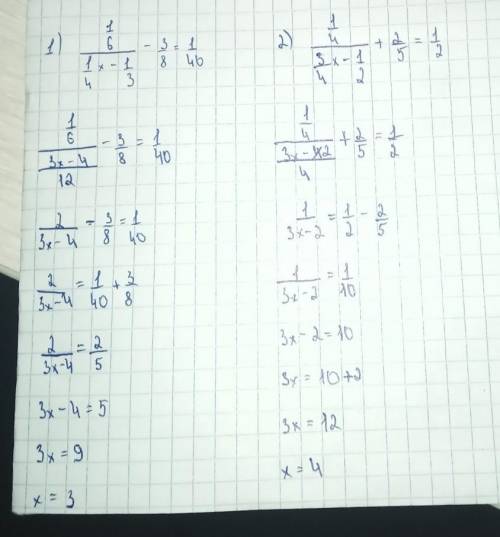 1) (1/6)/(1/4 x - 1/3) - 3/8 = 1/40
(1/6)/((3x-4)/12) - 3/8 = 1/40
2/(3x-4) - 3/8 = 1/40
2/(3x-4) = 1/40 + 3/8
2/(3x-4) = 2/5
3x-4 = 5
3x = 9
x = 3
2) (1/4)/(3/4 x - 1/2) + 2/5 = 1/2
(1/4)/((3x-2)/4) + 2/5 = 1/2
1/(3x-2) = 1/2 - 2/5
1/(3x-2) = 1/10
3x-2 = 10
3x = 10+2
3x = 12
x = 4